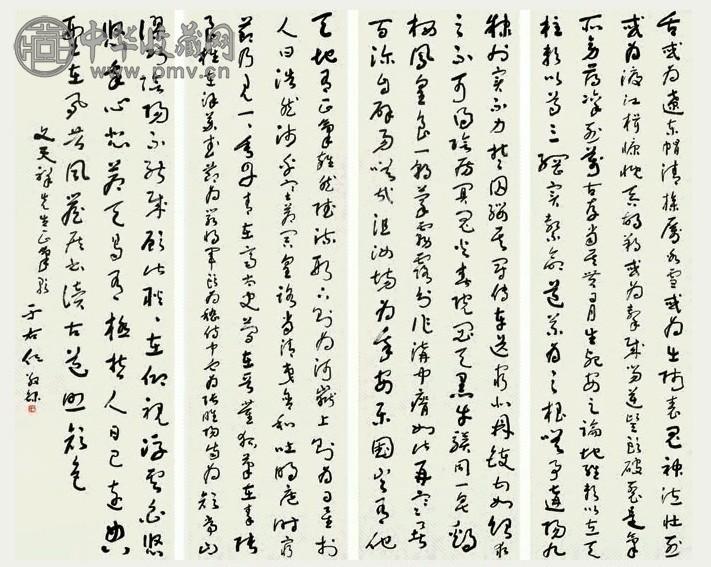 中华收藏网
www.pmv.cn
舌或为辽东帽清操厉冰雪或为出师表鬼神泣壮烈
或为渡江楫慷慨吞胡羯或为击贼笏逆竖头破裂是气
所旁薄凛烈万古存当其贯日月生死安足论地维赖以立天
柱赖以尊三纲实系命道义为之根嗟予遘阳九
隶也实不力楚囚缨其冠传车送穷北鼎镬甘如饴求
之不可得阴房阗鬼火春院閟天黑牛骥同一皂鸡
栖凤凰食一朝蒙雾露分作沟中瘠如此再寒暑
百沴自辟易嗟哉沮洳场为我安乐国岂有他
天地有正气杂然赋流形下则为河岳上则为日星于
人曰浩然沛乎塞苍冥皇路当清夷含和吐明庭时穷
节乃见一一垂丹青在齐太史简在晋董狐笔在秦张
良椎在汉苏武节为严将军头为嵇侍中血为张睢阳齿为颜常山
缪巧阴阳不能贼顾此耿耿在仰视浮云白悠
悠我心悲苍天曷有极哲人日已远典
型在夙昔风檐展书读古道照颜色
文天祥先生正气歌 于右任敬录